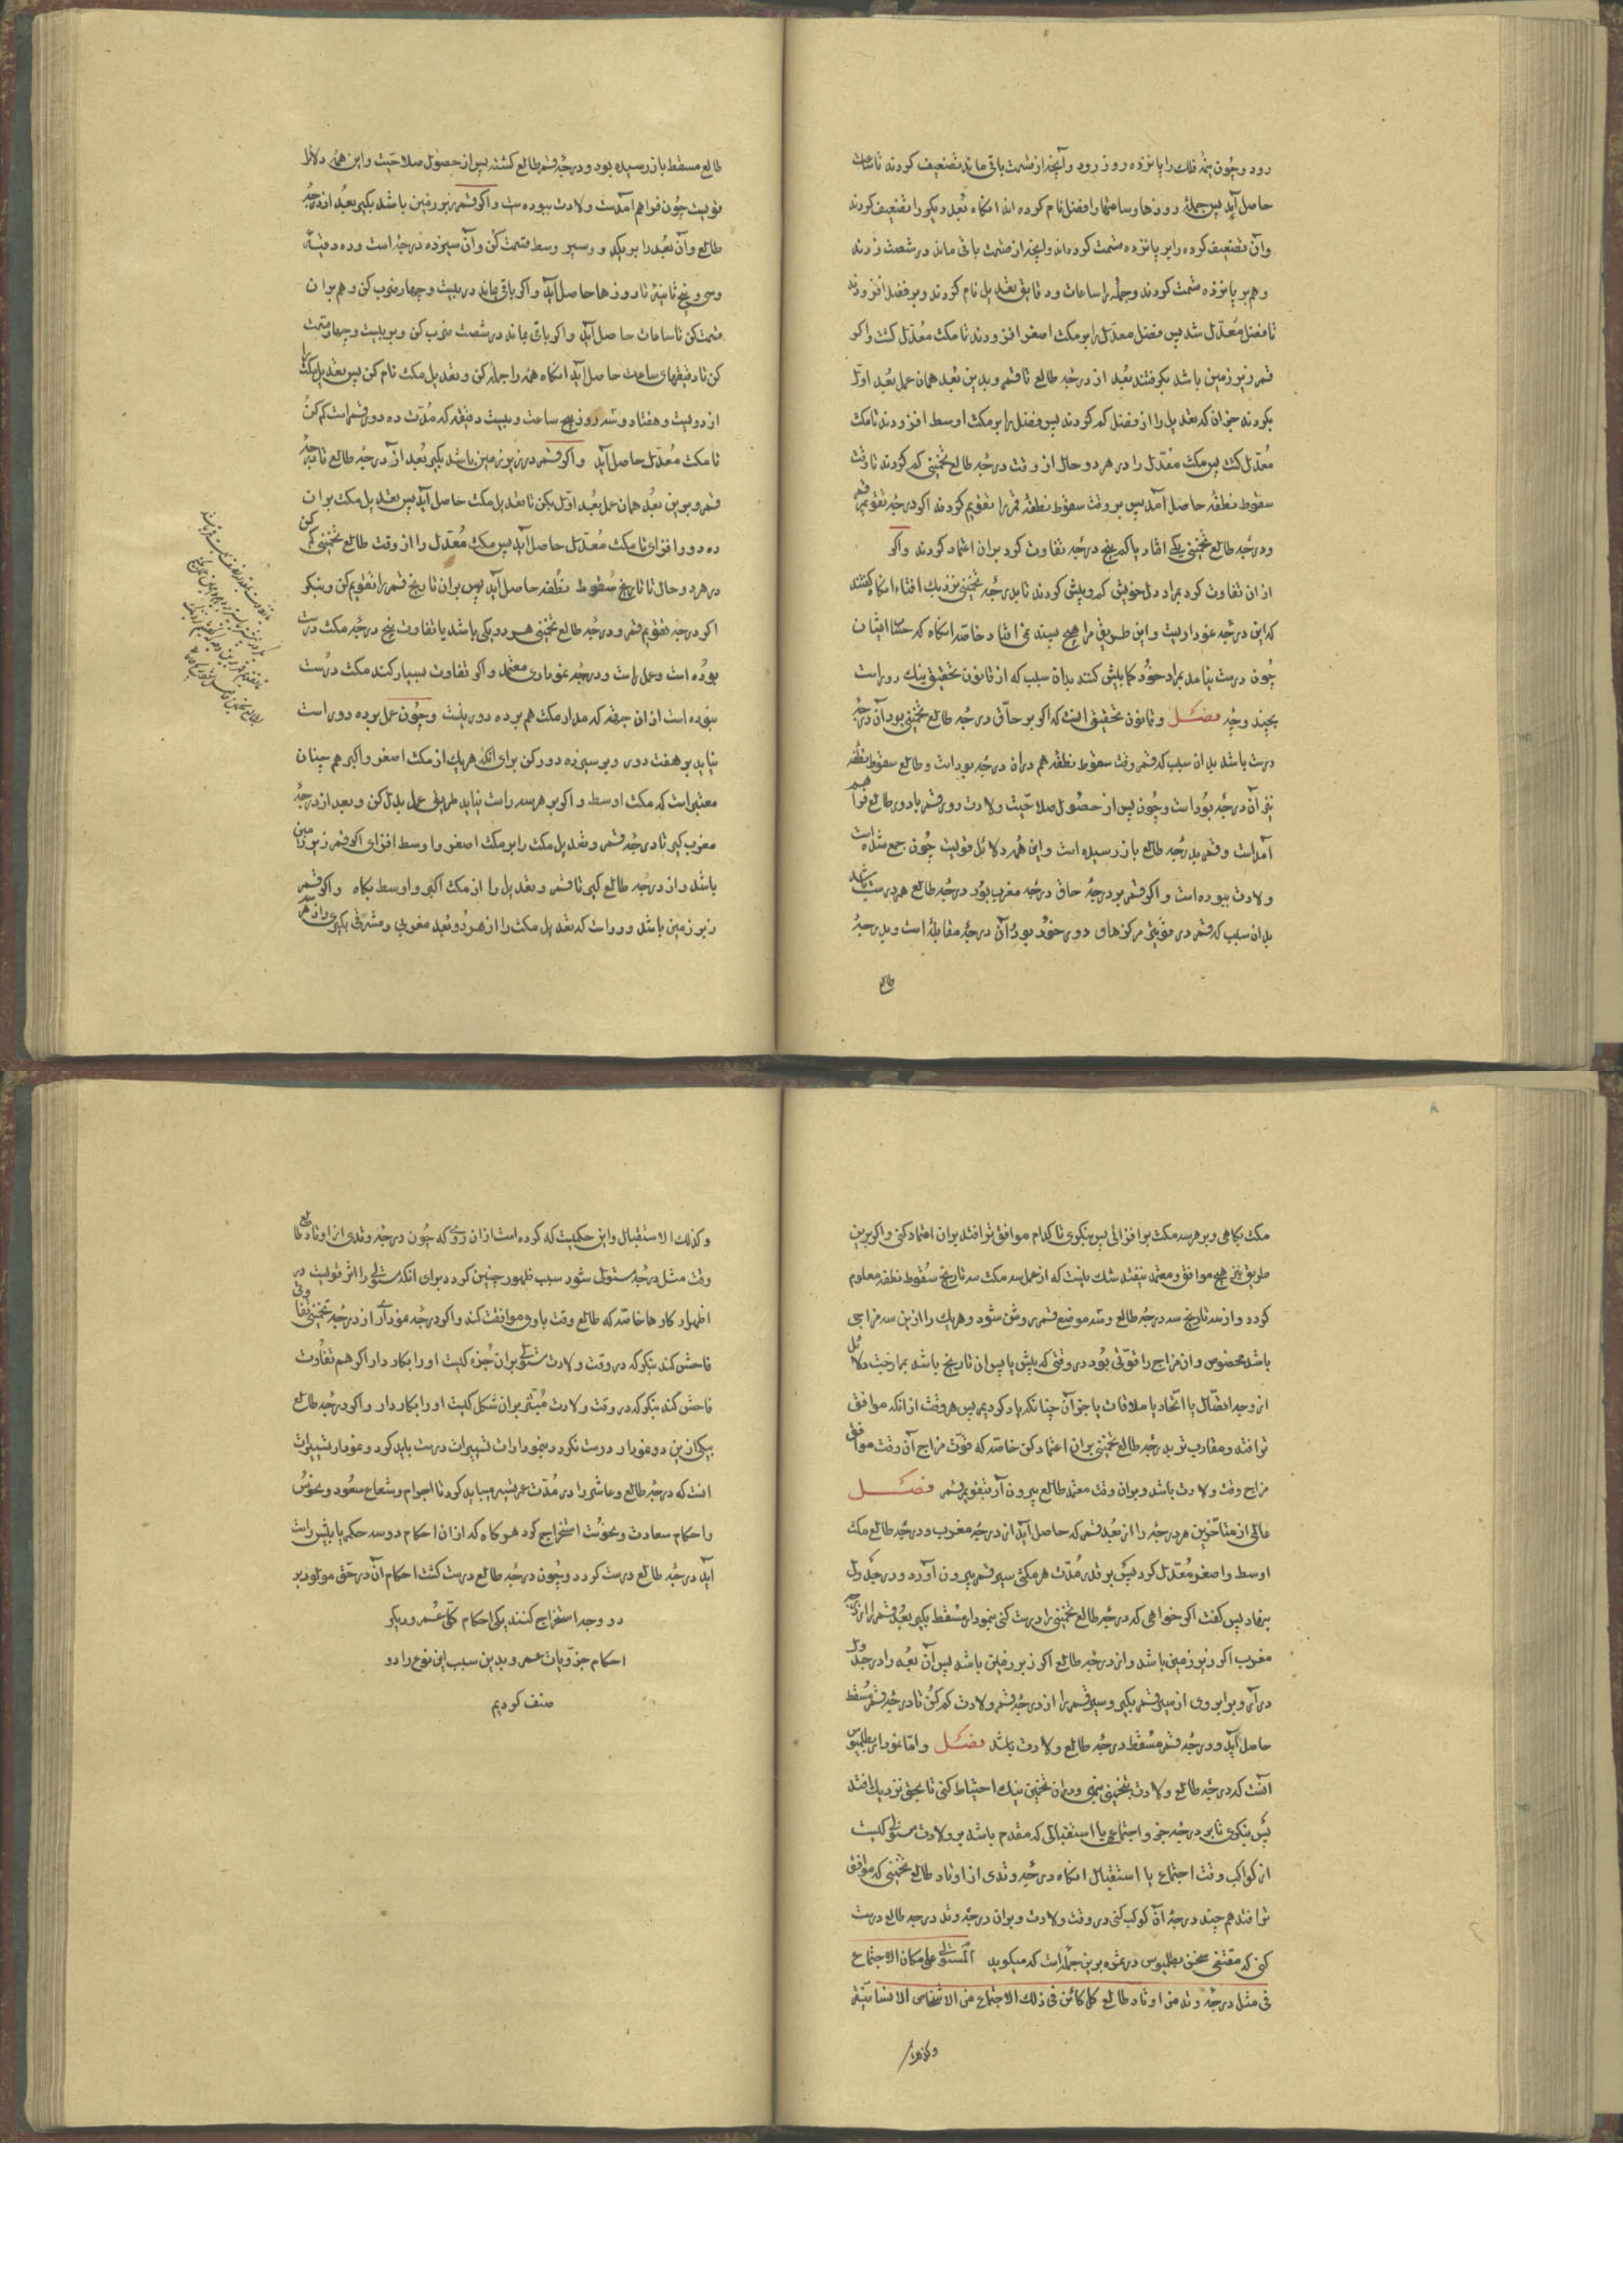 رود و چون نیمهٔ فلک را پانزده روز رود و آنچه از قسمت باقی ماند تضعیف کردند تا ساعات
حاصل آید پس جملهٔ روزها و ساعتها را فضل نام کرده اند انگاه بُعد دیگر را تضعیف کردند
وان تضعیف کرده را بر پانزده قسمت کرده‌اند و انچه از قسمت باقی ماند در شصت زدند
و هم بر پانزده قسمت کردند و جمله را ساعات و دقایق تعدیل نام کردند و بر فضل افزودند
تا فضل مُعدّل شد پس فضل معدّل را بر مکث اصغر افزودند تا مکث مُعدّل گشت و اکر
قمر زیر زمین باشد بکرفتند بُعد از درجهٔ طالع تا قمر و بدین بُعد همان عمل بُعد اوّل
بکردند جز ان که تعدیل را از فضل کم کردند پس فضل را بر مکث اوسط افزودند تا مکث
مُعدّل کشت پس مکث مُعدّل را در هر دو حال از وقت درجهٔ طالع تخمینی کم کردند تا وقت
سقوط نطفه حاصل آمد پس بر وقت سقوط نطفه قمر را تقویم کردند اکر درجهٔ تقویم قمر
و درجهٔ طالع تخمینی یکی افتاد یا کم پنج درجه تفاوت کرد بران اعتماد کردند و اکر
از ان تفاوت کرد بمراد دل خویش کم و بیش کردند تا بدرجهٔ تخمینی نزدیک افتاد انگاه گفتند
که این درجهٔ نمودارست و این طریق مرا هیچ پسنده نمی افتاد خاصّه انگاه که حساب ایشان
چُون درست نیامد بمراد خود کمابیش کنند بدان سبب که از قانون تحقیق نیک دور است
بچند وجه فصل و قانون تحقیق آنست که اکر بر حاقّ درجهٔ طالع تخمینی بود آن درجه
درست باشد بدان سبب که قمر وقت سقوط نطفه هم دران درجه بوداست و طالع سقوط نطفه
نیز آن درجه بُوداست و چُون پس از حصُول صلاحیّت ولادت دور قمر با دور طالع فراهم
آمداست و قمر بدرجهٔ طالع باز رسیده است و این همه دلائل قویست چُون جمع شده است
ولادت ببوده است و اکر قمر بر درجهٔ حاق درجهٔ مغرب بُود درجهٔ طالع هم درست باشد
بدان سبب که قمر در قوّیتی مرکزهای دور خُود بود آن درجهٔ مقابله است و بدرجهٔ
طالع
طالع مسقط باز رسیده بود و درجهٔ قمر طالع کشته پس از حصُول صلاحیّت و این همه دلائل
قویست چُون فراهم آمدست ولادت ببوده ست و اکر قمر زبر زمین باشد بکیر بُعد از درجهٔ
طالع و آن بُعد را بر یک روز سیر وسط قسمت کن و آن سیزده درجه است و ده دقیقه
و سی و پنج ثانیه تا روزها حاصل آید و اکر باقی بماند در بیست و چهار ضرب کن و هم بران
قسمت کن تا ساعات حاصل آید و اکر باقی بماند در شصت ضرب کن و بر بیست و چهار قسمت
کن تا دقیقهای ساعت حاصل آید انگاه همه را جمله کن و تعدیل مکث نام کن پس تعدیل مکث را
از دویست و هفتاد و سه روز پنج ساعت و بیست دقیقه که مُدّت ده دور قمراست کم کن
تا مکث مُعدّل حاصل آید و اکر قمر در زیر زمین باشد بکیر بُعد از درجهٔ طالع تا درجهٔ
قمر و برین بُعد همان عمل بُعد اوّل بکن تا تعدیل مکث حاصل آید پس تعدیل مکث بران
ده دور افزای تا مکث مُعدّل حاصل آید پس مکث مُعدّل را از وقت طالع تخمینی کم کن
در هر دو حال تا تاریخ سُقوط نُطفه حاصل آید پس بران تاریخ قمر را تقویم کن و بنکر
اکر درجهٔ تقویم قمر و درجهٔ طالع تخمینی هر دو یکی باشد یا تفاوت پنج درجه مکث درست
بوُده است و عمل راست و درجهٔ نموداری معتمد و اکر تفاوت بسیار کند مکث درست
نبوده است از ان جهة که مدار مکث هم بر ده دور نیست و چُون عمل بر ده دور راست
نیاید بر هفت دور و بر سیزده دور کن برای انکه هر یک از مکث اصغر و اکبر هم چنان
معتبر است که مکث اوسط و اکر بر هر سه راست نیاید طریق عمل بدل کن و بعد از درجهٔ
مغرب کیر تا درجهٔ قمر و تعدیل مکث را بر مکث اصغر و اوسط افزای اکر قمر زیر زمین
باشد و از درجهٔ طالع کیر تا قمر و تعدیل را از مکث اکبر و اوسط بکاه و اکر قمر
زبر زمین باشد و رواست که تعدیل مکث را از هر دو بُعد مغربی و مشرقی بکیری و از هر
مکث بکاهی و بر هر سه مکث بر افزائی پس بنکری تا کدام موافق تر افتد بران اعتماد کنی و اکر برین
طریق نیز هیچ موافق و معتمد نیفتد شک نیست که از عمل سه مکث سه تاریخ سُقوط نطفه معلوم
کردد و از سه تاریخ سه درجهٔ طالع و سه موضع قمر روشن شود و هر یک را ازین سه مزاجی
باشد مخصوص و ان مزاج را قوّتی بُود در وقتی که پیش یا پس ان تاریخ باشد بمازجت دلائل
از وجه اتصّال یا اتّحاد یا ملاقات یا جز آن چنانکه یاد کردیم پس هر وقت از انکه موافق
تر افتد و مقارب تر بدرجهٔ طالع تخمینی بران اعتماد کن خاصّه که قوّت مزاج آن وقت موافق
مزاج وقت ولادت باشد و بران وقت معتمد طالع بیرون آر بتقویم قمر فصل
غالی از متاخّرین هر درجه را از بُعد قمر که حاصل آید از درجهٔ مغرب و درجهٔ طالع مکث
اوسط و اصغر مُعدّل کرد پس بر قدر مُدّت هر مکثی سیر قمر بیرون آورد و در جدول
نهاد پس کفت اکر خواهی که درجهٔ طالع تخمینی را درست کنی بنمودار مُسقط بکیر بُعد قمر را از درجهٔ
مغرب اکر زیر زمین باشد و از درجهٔ طالع اکر زبر زمین باشد پس آن بُعد را در جدول
در آر و برابر وی از سیر قمر بکیر و سیر قمر را از درجهٔ قمر ولادت کم کُن تا درجهٔ قمر مُسقط
حاصل آید و درجهٔ قمر مُسقط درجهٔ طالع ولادت باشد فصل و امّا نمودار بطلمیوس
انست که درجهٔ طالع ولادت بتخمین بنهی و دران تخمین نیک احتیاط کنی تا بحق نزدیک افتد
پس بنکری تا بر درجهٔ جزو اجتماعی یا استقبالی که مقدم باشد بر ولادت مستولی کیست
از کواکب وقت اجتماع یا استقبال انکاه درجهٔ وتدی از اوتاد طالع تخمینی که موافق
تر افتد هم چند درجهٔ آن کوکب کنی در وقت ولادت و بران درجهٔ وتد درجهٔ طالع درست
کنی که مقتضی سخن بطلمیوس در ثمره برین جمله است که میکوید المستولی علی مکان الاجتماع
فی مثل درجة وتد من اوتاد طالع کل کائن فی ذلک الاجتماع من الاشخاص الانسانیّة
وکذلک
و کذلک الاستقبال و این حکمیست که کرده است از ان روی که چُون درجهٔ وتدی از اوتاد طالع
وقت مثل درجهٔ مستولی شود سبب ظهور چنین کردد برای انکه مستولی را اثر قویست در
اظهار کارها خاصّه که طالع وقت با وی موافقت کند و اکر درجهٔ نمودار از درجهٔ تخمینی تفاوتی
فاحش کند بنکر که در وقت ولادت مستولی بران جُزء کیست او را بکار دار اکر هم تفاوت
فاحش کند بنکر که در وقت ولادت مُبتز بران شکل کیست او را بکار دار و اکر درجهٔ طالع
بیکی ازین دو نمودار درست نکردد بنمودارات تسییرات درست باید کرد و نمودار تسییرات
انست که درجهٔ طالع و عاشر را در مُدّت عمر تسییر میباید کرد تا اجرام و شعاع سعُود و نحوس
و احکام سعادت و نحوُست استخراج کرد هر کاه که از ان احکام دو سه حکم یا بیش راست
آید درجهٔ طالع درست کردد و چُون درجهٔ طالع درست کشت احکام آن در حقّ مولود بر
دو وجه استخراج کنند یکی احکام کلّی عُمر و دیکر
احکام جزویات عمر و بدین سبب این نوع را دو
صنف کردیم